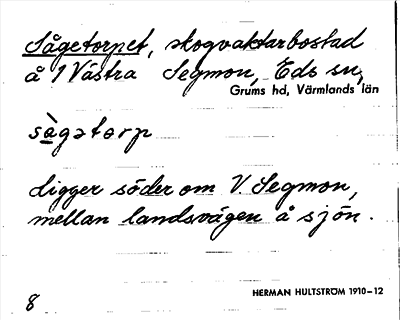 Sågetorpet, skogvaktarbostad
å 1 Västra Segmon, Eds sn,
Grums hd, Värmlands län
sàgətorp
Ligger söder om V. Segmon,
mellan landsvägen å sjön.
8
HERMAN HULTSTRÖM 1910–12